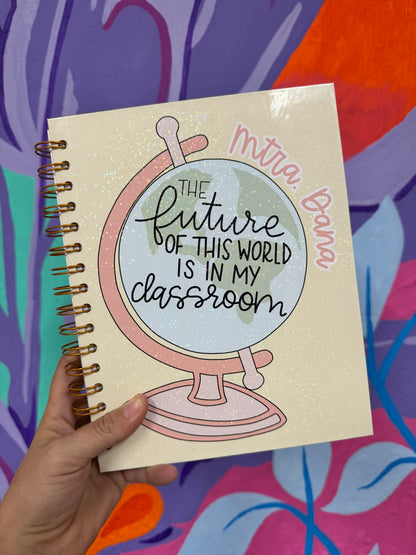 Mtra. Dana
THE
future
OF THIS WORLD
IS IN MY
classroom